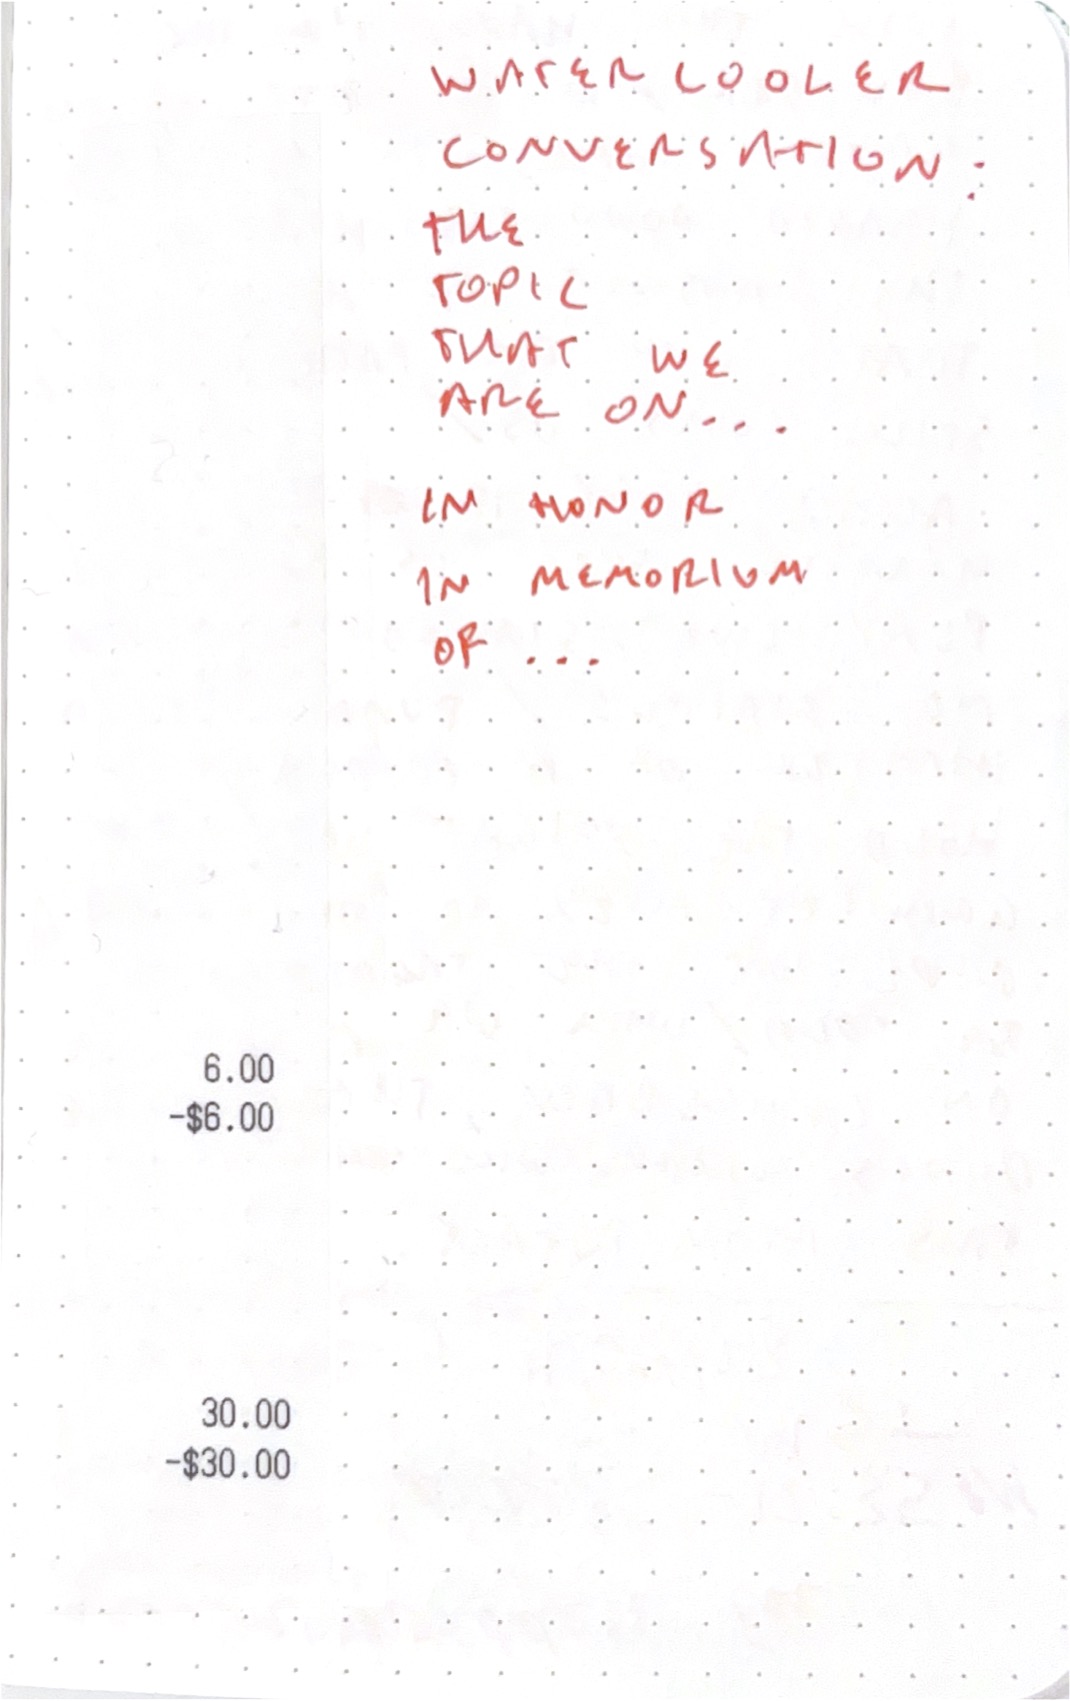 WATER COOLER
CONVERSATION:
THE
TOPIC
THAT WE
ARE ON...
IN HONOR
IN MEMORIUM
OF ...
6.00
-$6.00
30.00
-$30.00